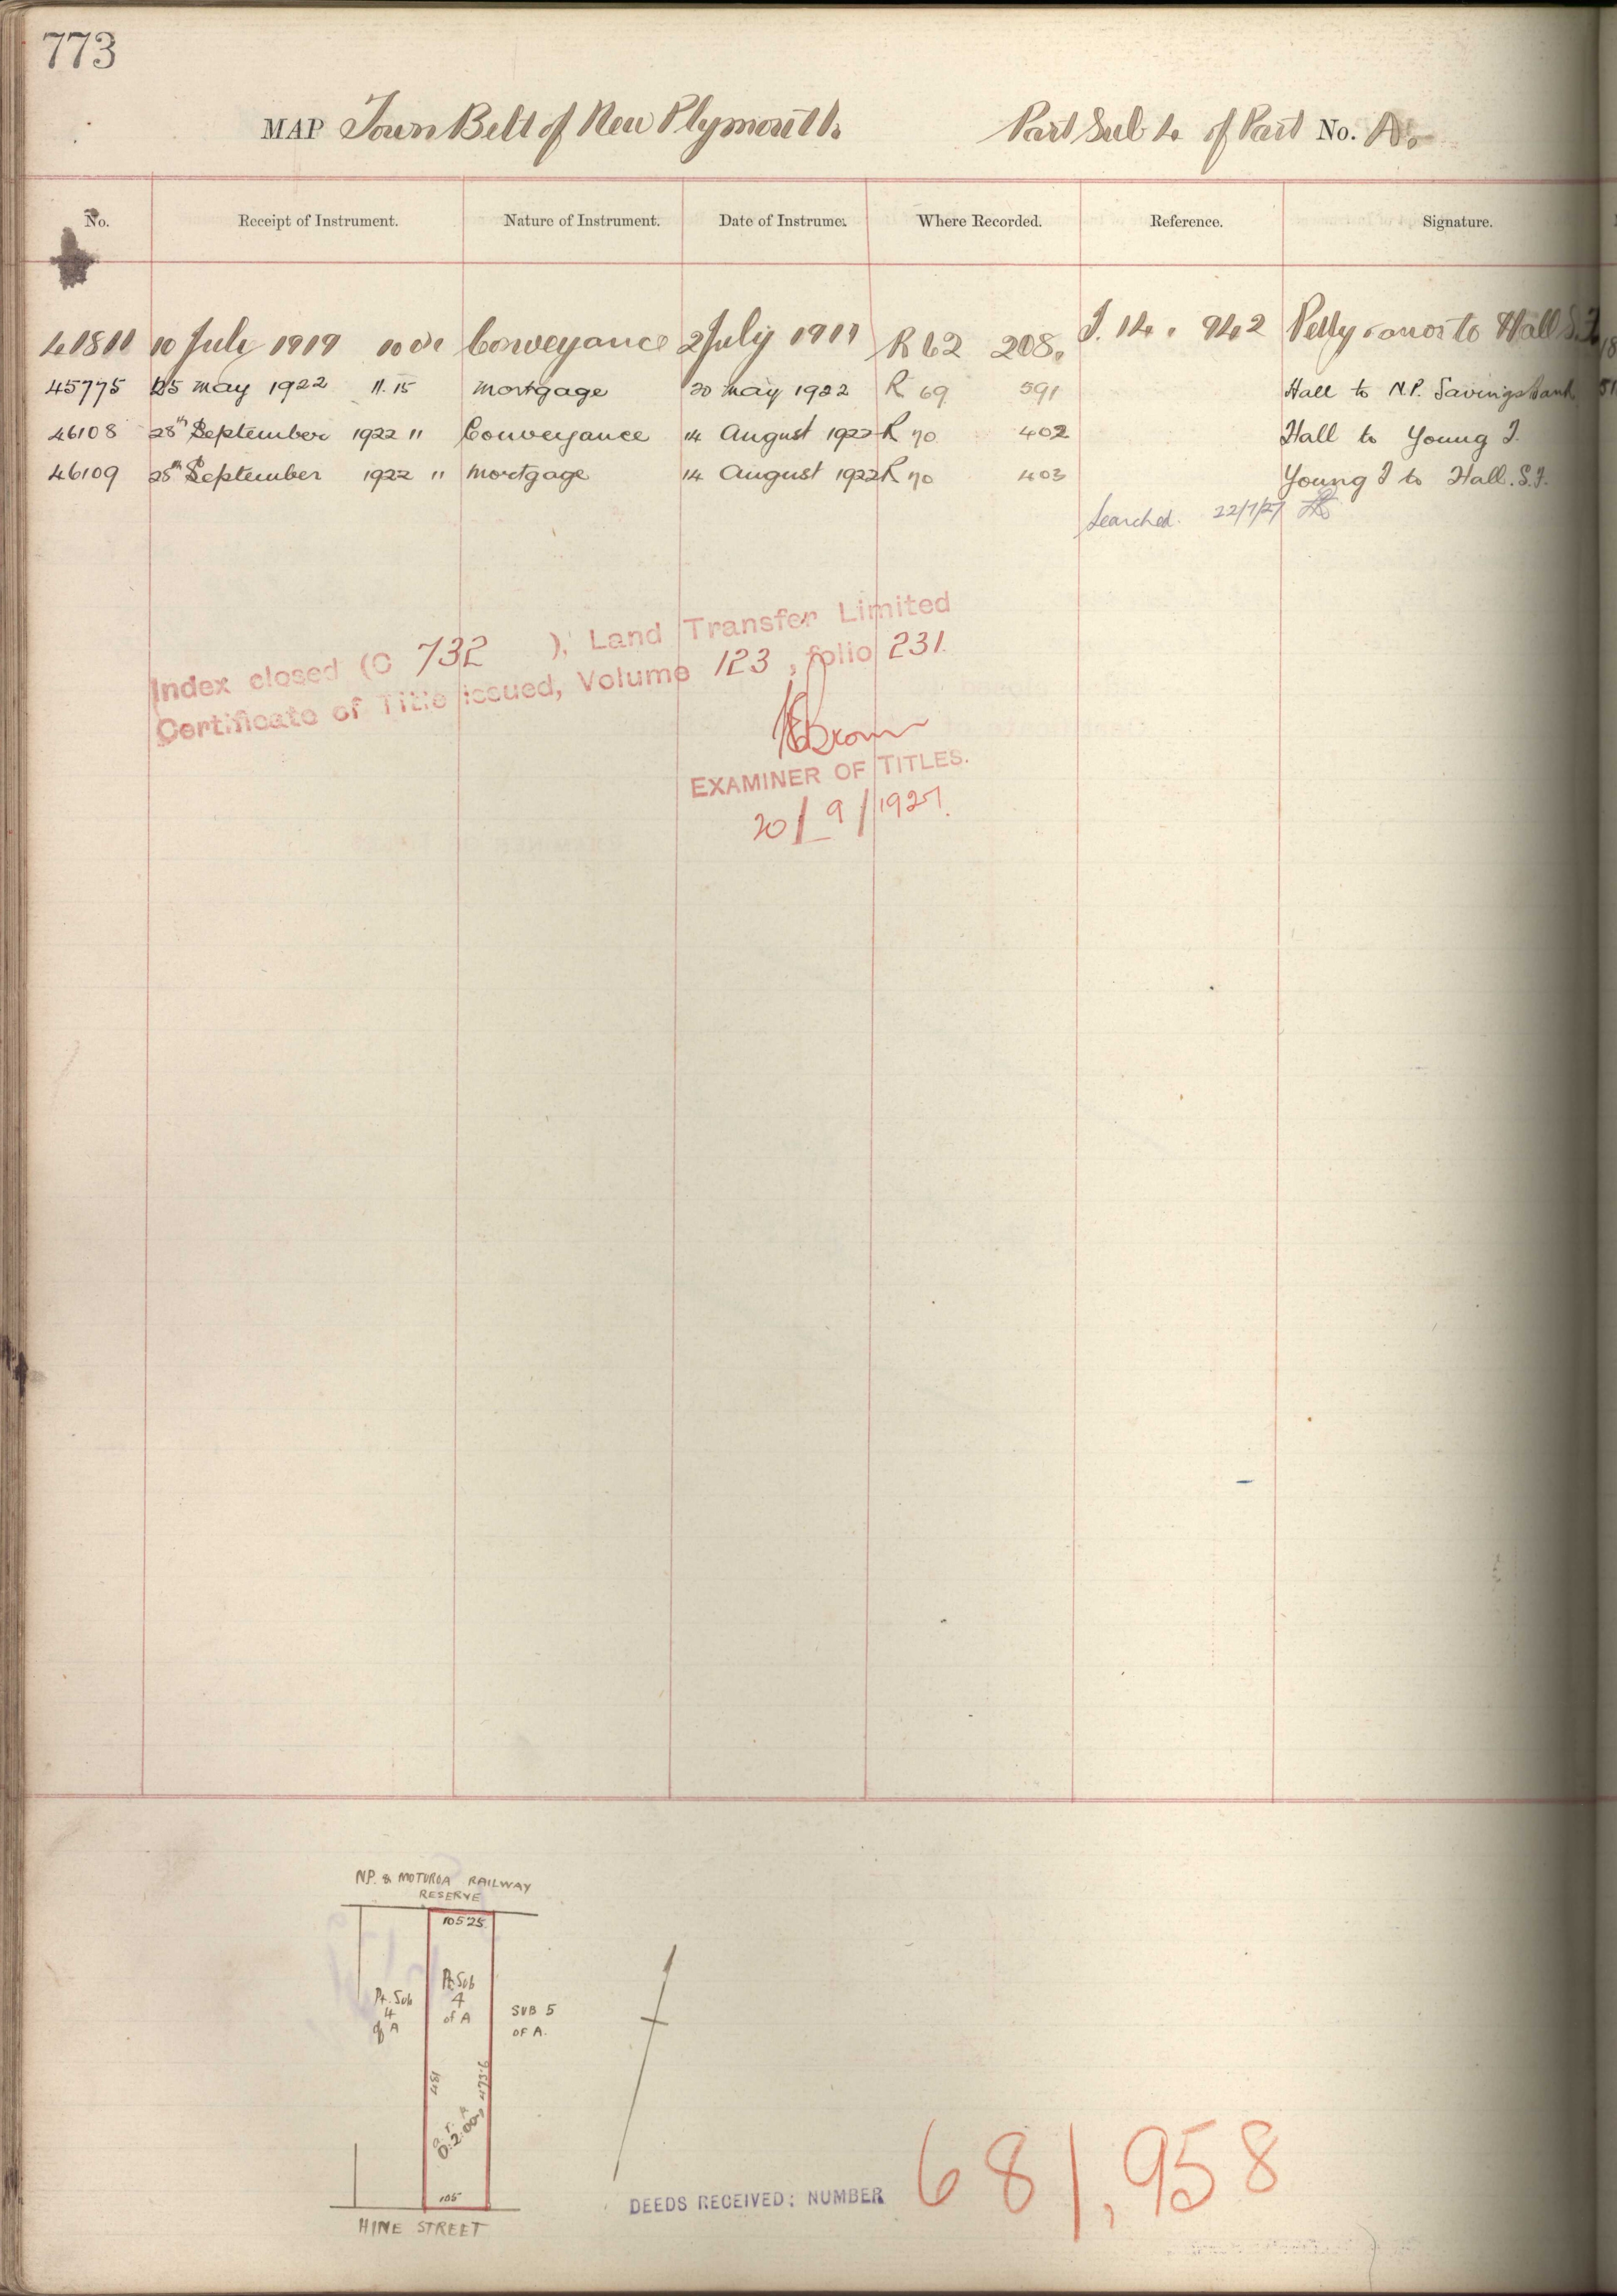 773
MAP Town Belt of New Plymouth. Part Sub 4 of Part No. A.
No. Receipt of Instrument. Nature of Instrument. Date of Instrument. Where Recorded. Reference. Signature.
41811 10 July 1919 10 Conveyance 2 July 1919 R 62 208. I. 14. 942 Pelly & anor to Hall S.J.
45775 25 May 1922 11.15 Mortgage 20 May 1922 R 69 591 Hall to N.P. Savings Bank
46108 28th September 1922 " Conveyance 14 August 1922 R 70 402 Hall to Young J.
46109 28th September 1922 " Mortgage 14 August 1922 R 70 403 Young J to Hall. S.J.
Searched. 22/7/27
Index closed (C 732 ). Land Transfer Limited
Certificate of Title issued, Volume 123, folio 231.
Brown
EXAMINER OF TITLES.
20/9/1927.
N.P. & MOTUROA RAILWAY
RESERVE
105.25
Pt. Sub
4
of A
Pt. Sub
4
of A
SUB 5
OF A.
481
473.6
A. R. P.
0.2.00
105
HINE STREET
DEEDS RECEIVED: NUMBER 681,958